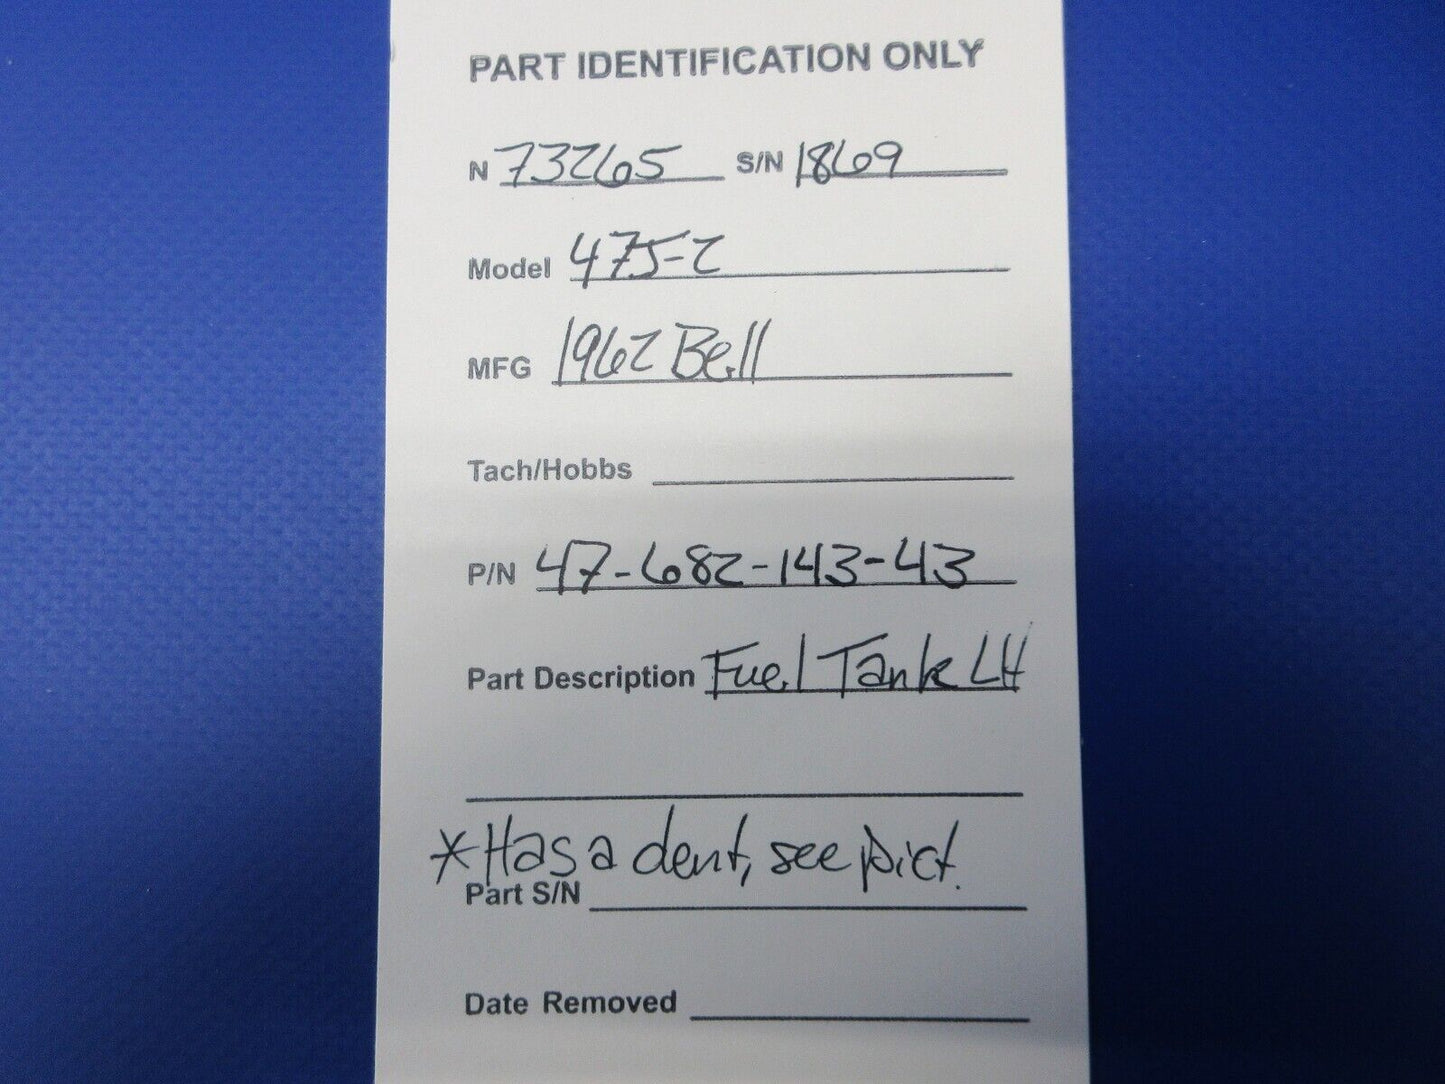 PART IDENTIFICATION ONLY
N 73265 S/N 1869
Model 47J-2
MFG 1962 Bell
Tach/Hobbs
P/N 47-682-143-43
Part Description Fuel Tank LH
*Has a dent, see pict.
Part S/N
Date Removed